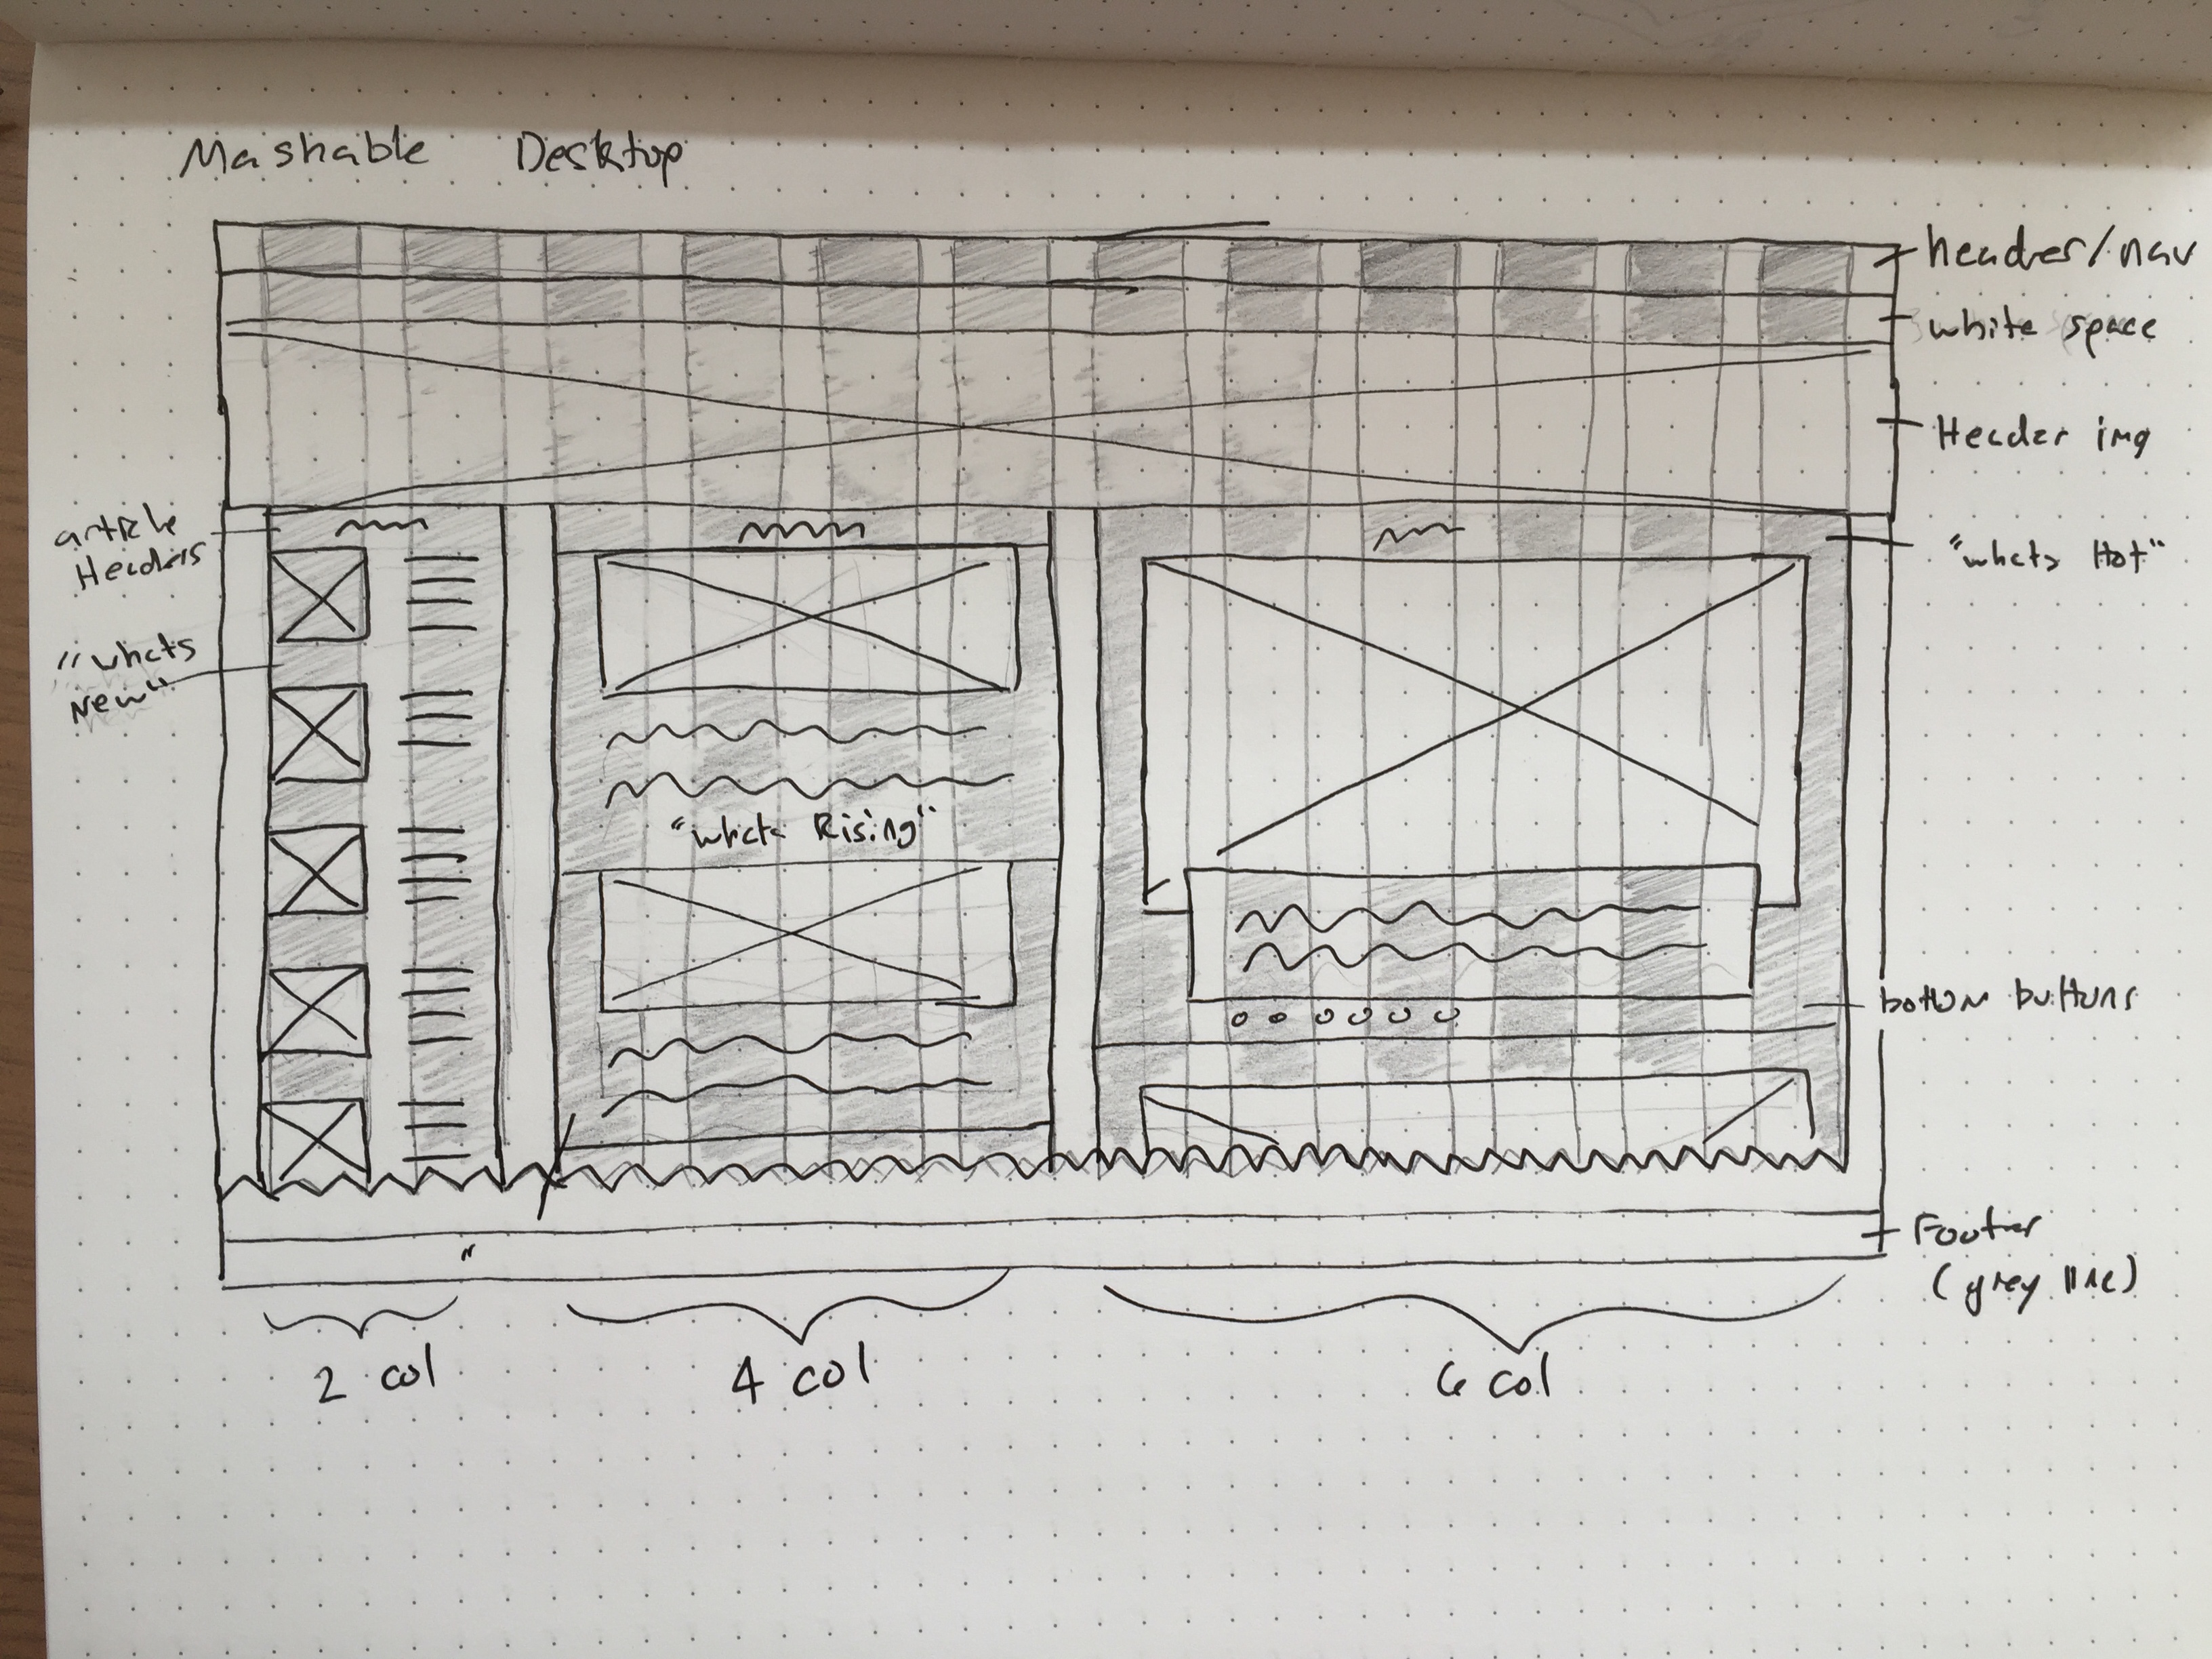 Mashable Desktop
header/nav
white space
Header img
article
Headers
"whats Hot"
"whats
New"
"whats Rising"
bottom buttons
Footer
(grey line)
2 col
4 col
6 col